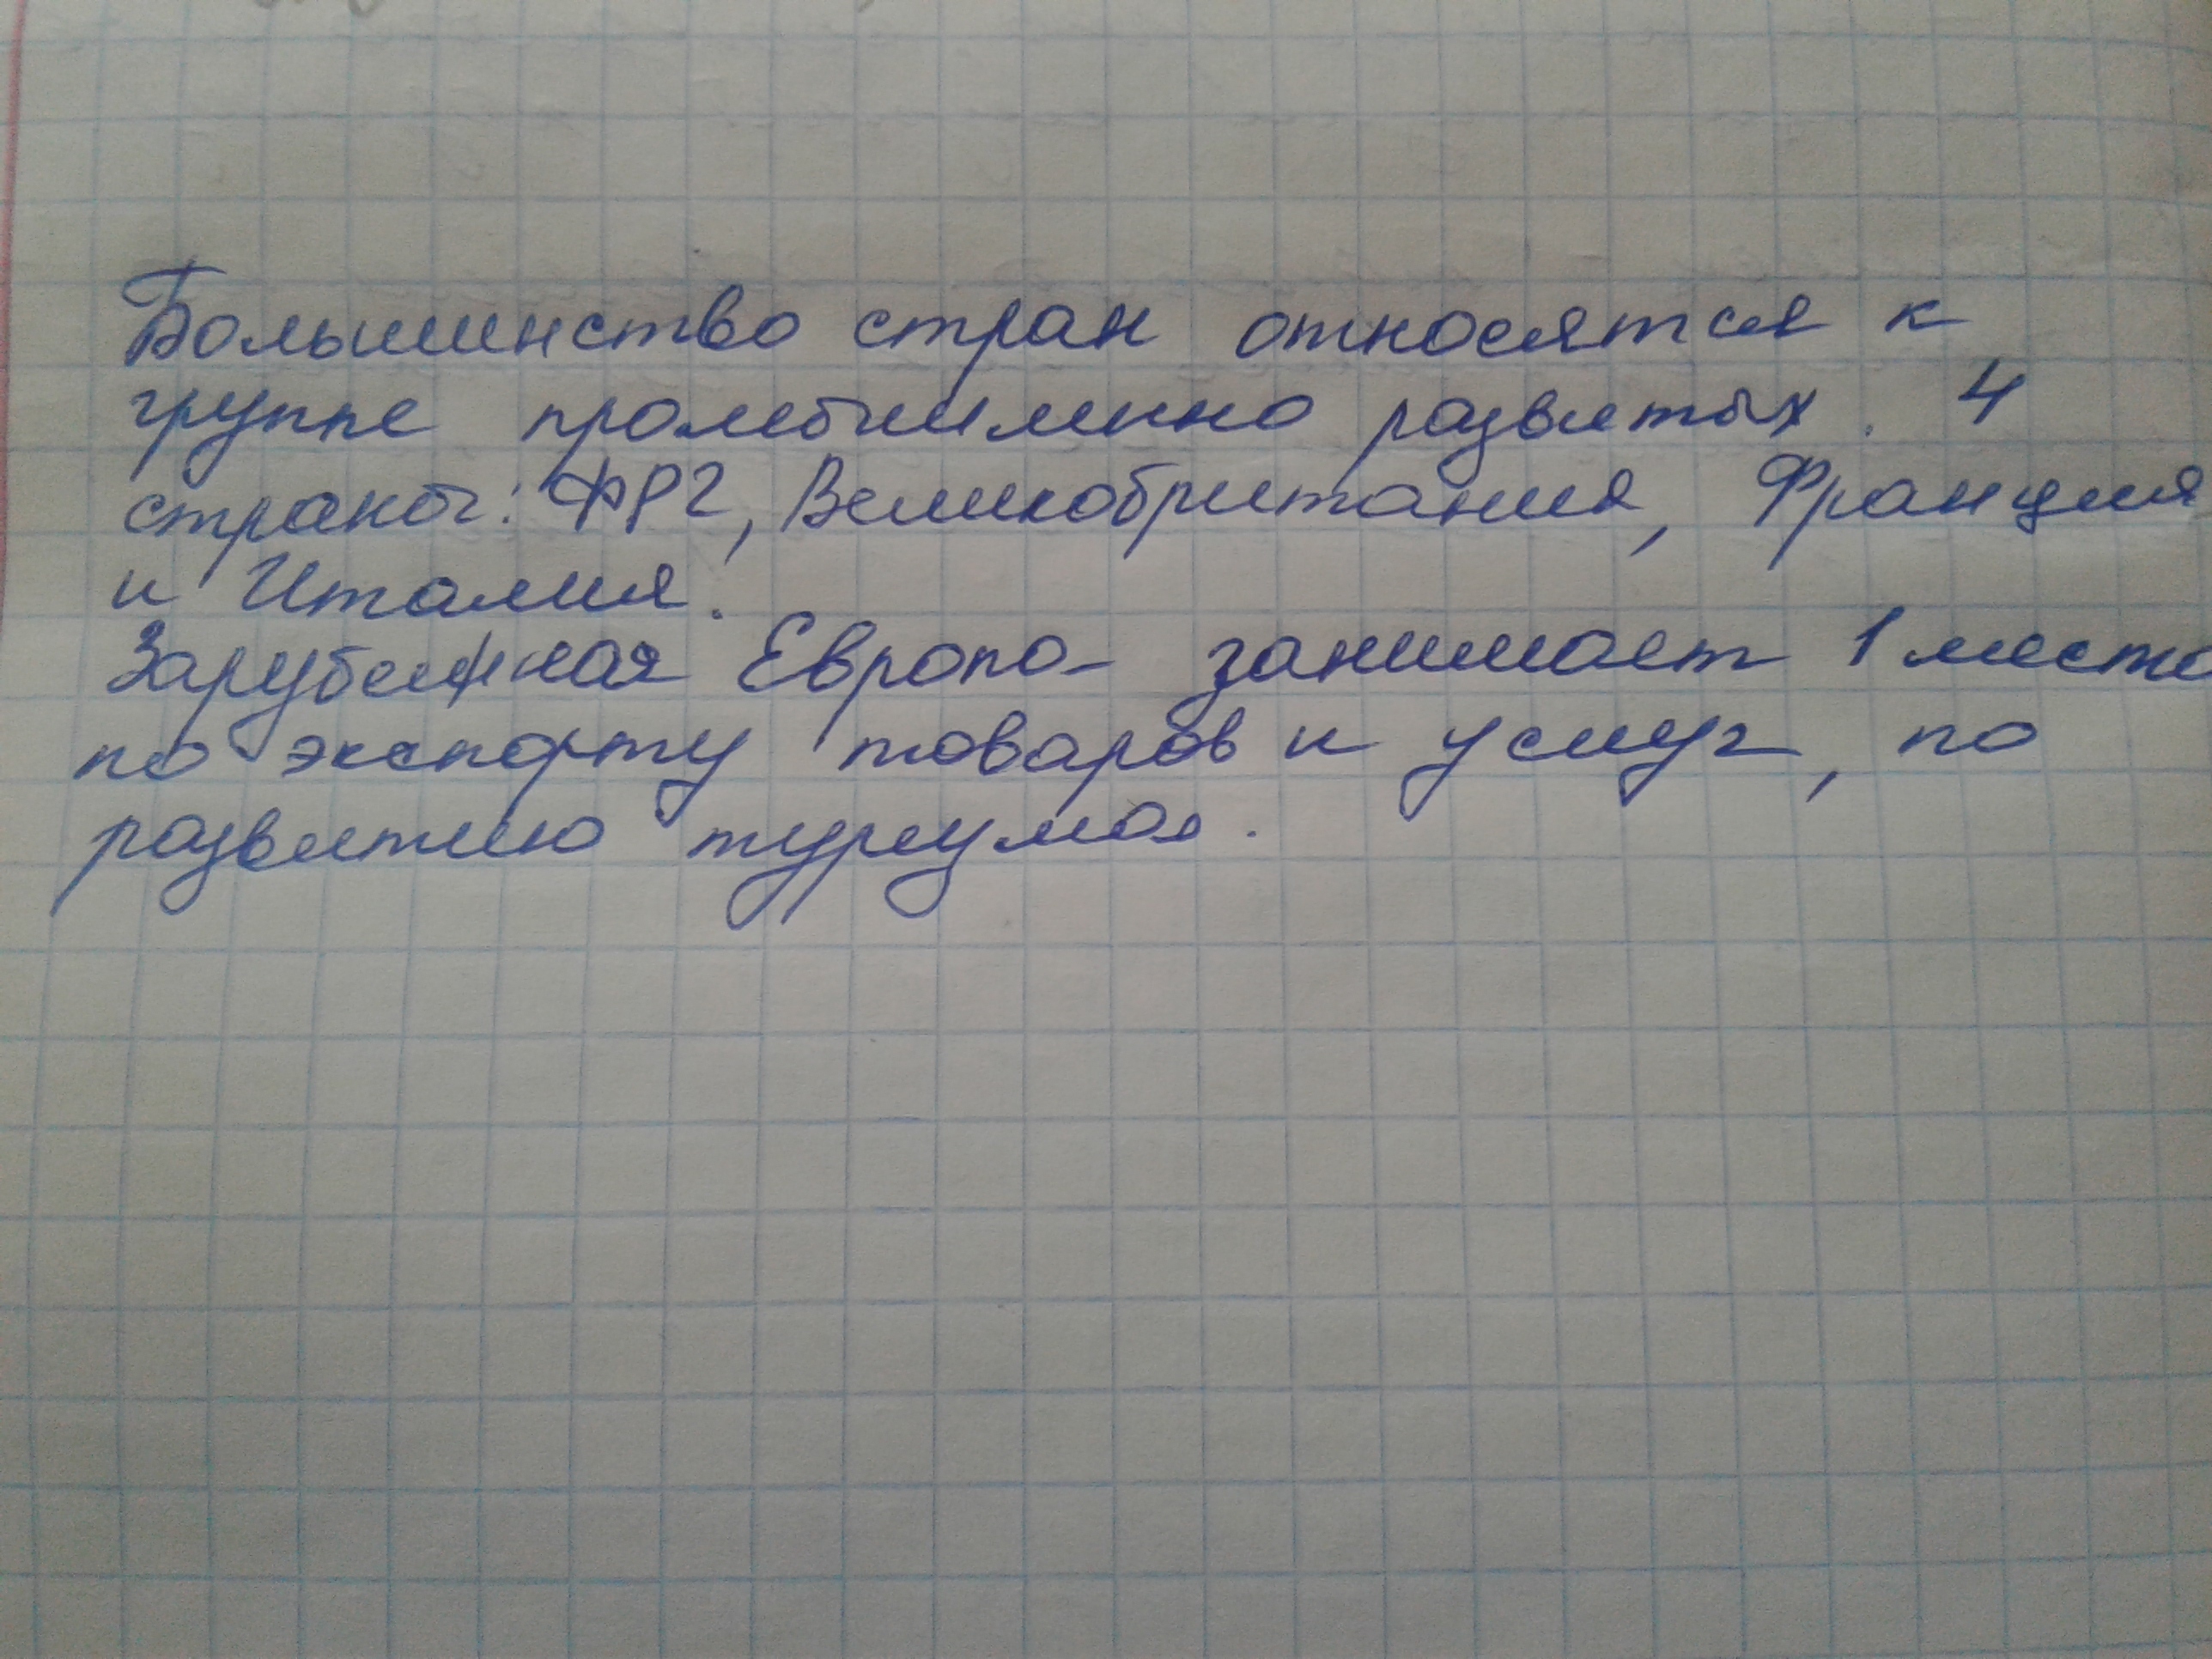 Большинство стран относятся к
группе промышленно развитых. 4
страны: ФРГ, Великобритания, Франция
и Италия.
Зарубежная Европа- занимает 1 место
по экспорту товаров и услуг, по
развитию туризма.